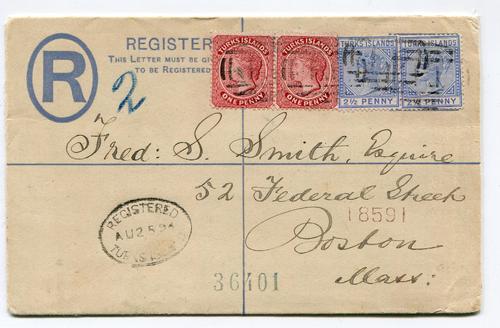 REGISTER
THIS LETTER MUST BE GIV
TO BE REGISTERED
R
2
TURKS ISLANDS
ONE PENNY
TURKS ISLANDS
ONE PENNY
TURKS ISLANDS
2½ PENNY
TURKS ISLANDS
2½ PENNY
Fred: S. Smith, Esquire
52 Federal Street
18591
Boston
Mass:
REGISTERED
AU 25 94
TURKS
36401